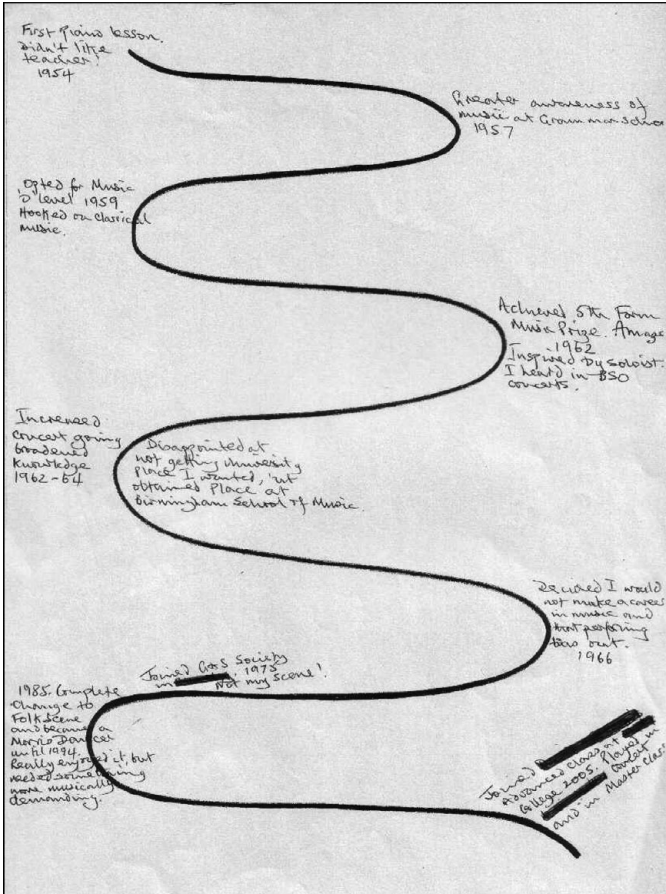 First Piano lesson.
Didn't like
teacher!
1954
Greater awareness of
music at Grammar School
1957
Opted for Music
'O' level 1959
Hooked on classical
music.
Achieved 5th Form
Music Prize. Amazed
1962
Inspired by soloist.
I heard in BSO
concerts.
Increased
concert going
broadened
knowledge
1962-64
Disappointed at
not getting University
place I wanted, but
obtained place at
Birmingham School of Music.
Decided I would
not make a career
in music and
that performing
was out.
1966
Joined G&S Society
in 1975
Not my scene!
1985. Complete
change to
Folk Scene
and became a
Morris Dancer
until 1994.
Really enjoyed it, but
needed something
more musically
demanding.
Joined
Advanced class at
College 2005. Played in
concert
and in Master Class